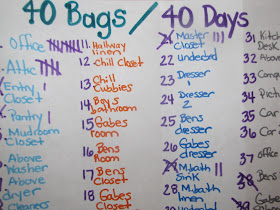 40 Bags / 40 Days
Office
Attic
Entry
Closet
Pantry
Mudroom
Closet
Above
Washer
Above
dryer
Cleaners
11. Hallway
linen
12. Chill Closet
13. Chill
Cubbies
14. Boys
bathroom
15. Gabes
room
16. Bens
Room
17. Bens
Closet
18. Gabes
Closet
21. Master
Closet
22. undecided
23. Dresser
24. Dresser
2
25. Bens
dresser
26. Gabes
dresser
27. M.bath
sink
28. M.bath
linen
31. Kitch
Des
32. Above
33. Comp
34. Pict
35. Clos
36. und
37. office
38.
39.